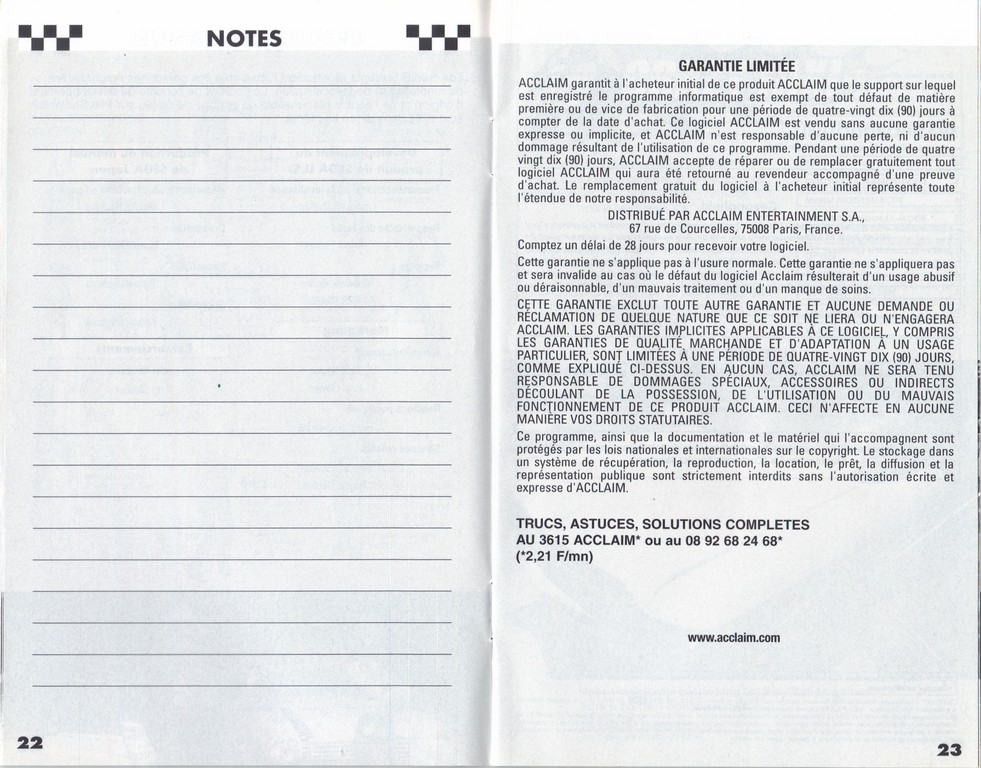 NOTES
22
GARANTIE LIMITÉE
ACCLAIM garantit à l'acheteur initial de ce produit ACCLAIM que le support sur lequel
est enregistré le programme informatique est exempt de tout défaut de matière
première ou de vice de fabrication pour une période de quatre-vingt dix (90) jours à
compter de la date d'achat. Ce logiciel ACCLAIM est vendu sans aucune garantie
expresse ou implicite, et ACCLAIM n'est responsable d'aucune perte, ni d'aucun
dommage résultant de l'utilisation de ce programme. Pendant une période de quatre
vingt dix (90) jours, ACCLAIM accepte de réparer ou de remplacer gratuitement tout
logiciel ACCLAIM qui aura été retourné au revendeur accompagné d'une preuve
d'achat. Le remplacement gratuit du logiciel à l'acheteur initial représente toute
l'étendue de notre responsabilité.
DISTRIBUÉ PAR ACCLAIM ENTERTAINMENT S.A.,
67 rue de Courcelles, 75008 Paris, France.
Comptez un délai de 28 jours pour recevoir votre logiciel.
Cette garantie ne s'applique pas à l'usure normale. Cette garantie ne s'appliquera pas
et sera invalide au cas où le défaut du logiciel Acclaim résulterait d'un usage abusif
ou déraisonnable, d'un mauvais traitement ou d'un manque de soins.
CETTE GARANTIE EXCLUT TOUTE AUTRE GARANTIE ET AUCUNE DEMANDE OU
RÉCLAMATION DE QUELQUE NATURE QUE CE SOIT NE LIERA OU N'ENGAGERA
ACCLAIM. LES GARANTIES IMPLICITES APPLICABLES À CE LOGICIEL, Y COMPRIS
LES GARANTIES DE QUALITÉ MARCHANDE ET D'ADAPTATION À UN USAGE
PARTICULIER, SONT LIMITÉES À UNE PÉRIODE DE QUATRE-VINGT DIX (90) JOURS,
COMME EXPLIQUÉ CI-DESSUS. EN AUCUN CAS, ACCLAIM NE SERA TENU
RESPONSABLE DE DOMMAGES SPÉCIAUX, ACCESSOIRES OU INDIRECTS
DÉCOULANT DE LA POSSESSION, DE L'UTILISATION OU DU MAUVAIS
FONCTIONNEMENT DE CE PRODUIT ACCLAIM. CECI N'AFFECTE EN AUCUNE
MANIÈRE VOS DROITS STATUTAIRES.
Ce programme, ainsi que la documentation et le matériel qui l'accompagnent sont
protégés par les lois nationales et internationales sur le copyright. Le stockage dans
un système de récupération, la reproduction, la location, le prêt, la diffusion et la
représentation publique sont strictement interdits sans l'autorisation écrite et
expresse d'ACCLAIM.
TRUCS, ASTUCES, SOLUTIONS COMPLETES
AU 3615 ACCLAIM* ou au 08 92 68 24 68*
(*2,21 F/mn)
www.acclaim.com
23